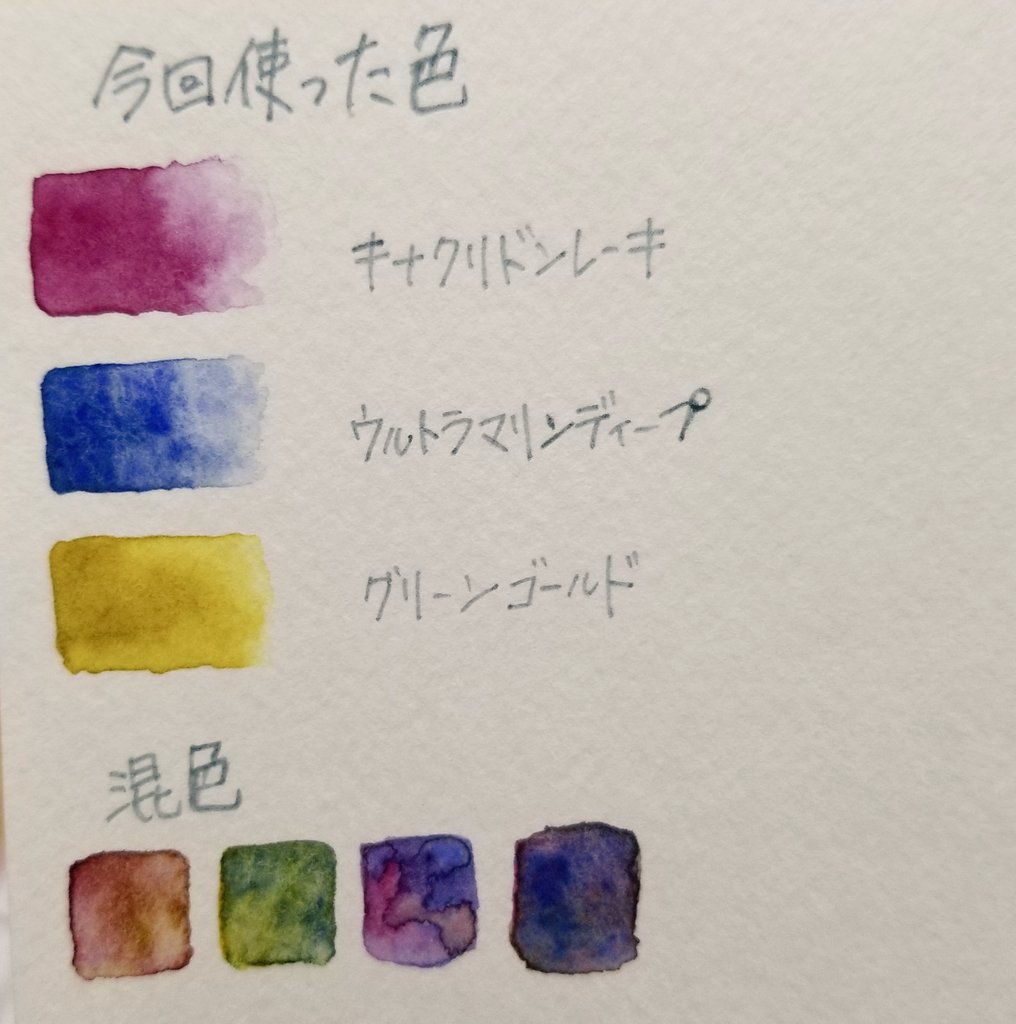 今回使った色
キナクリドンレーキ
ウルトラマリンディープ
グリーンゴールド
混色